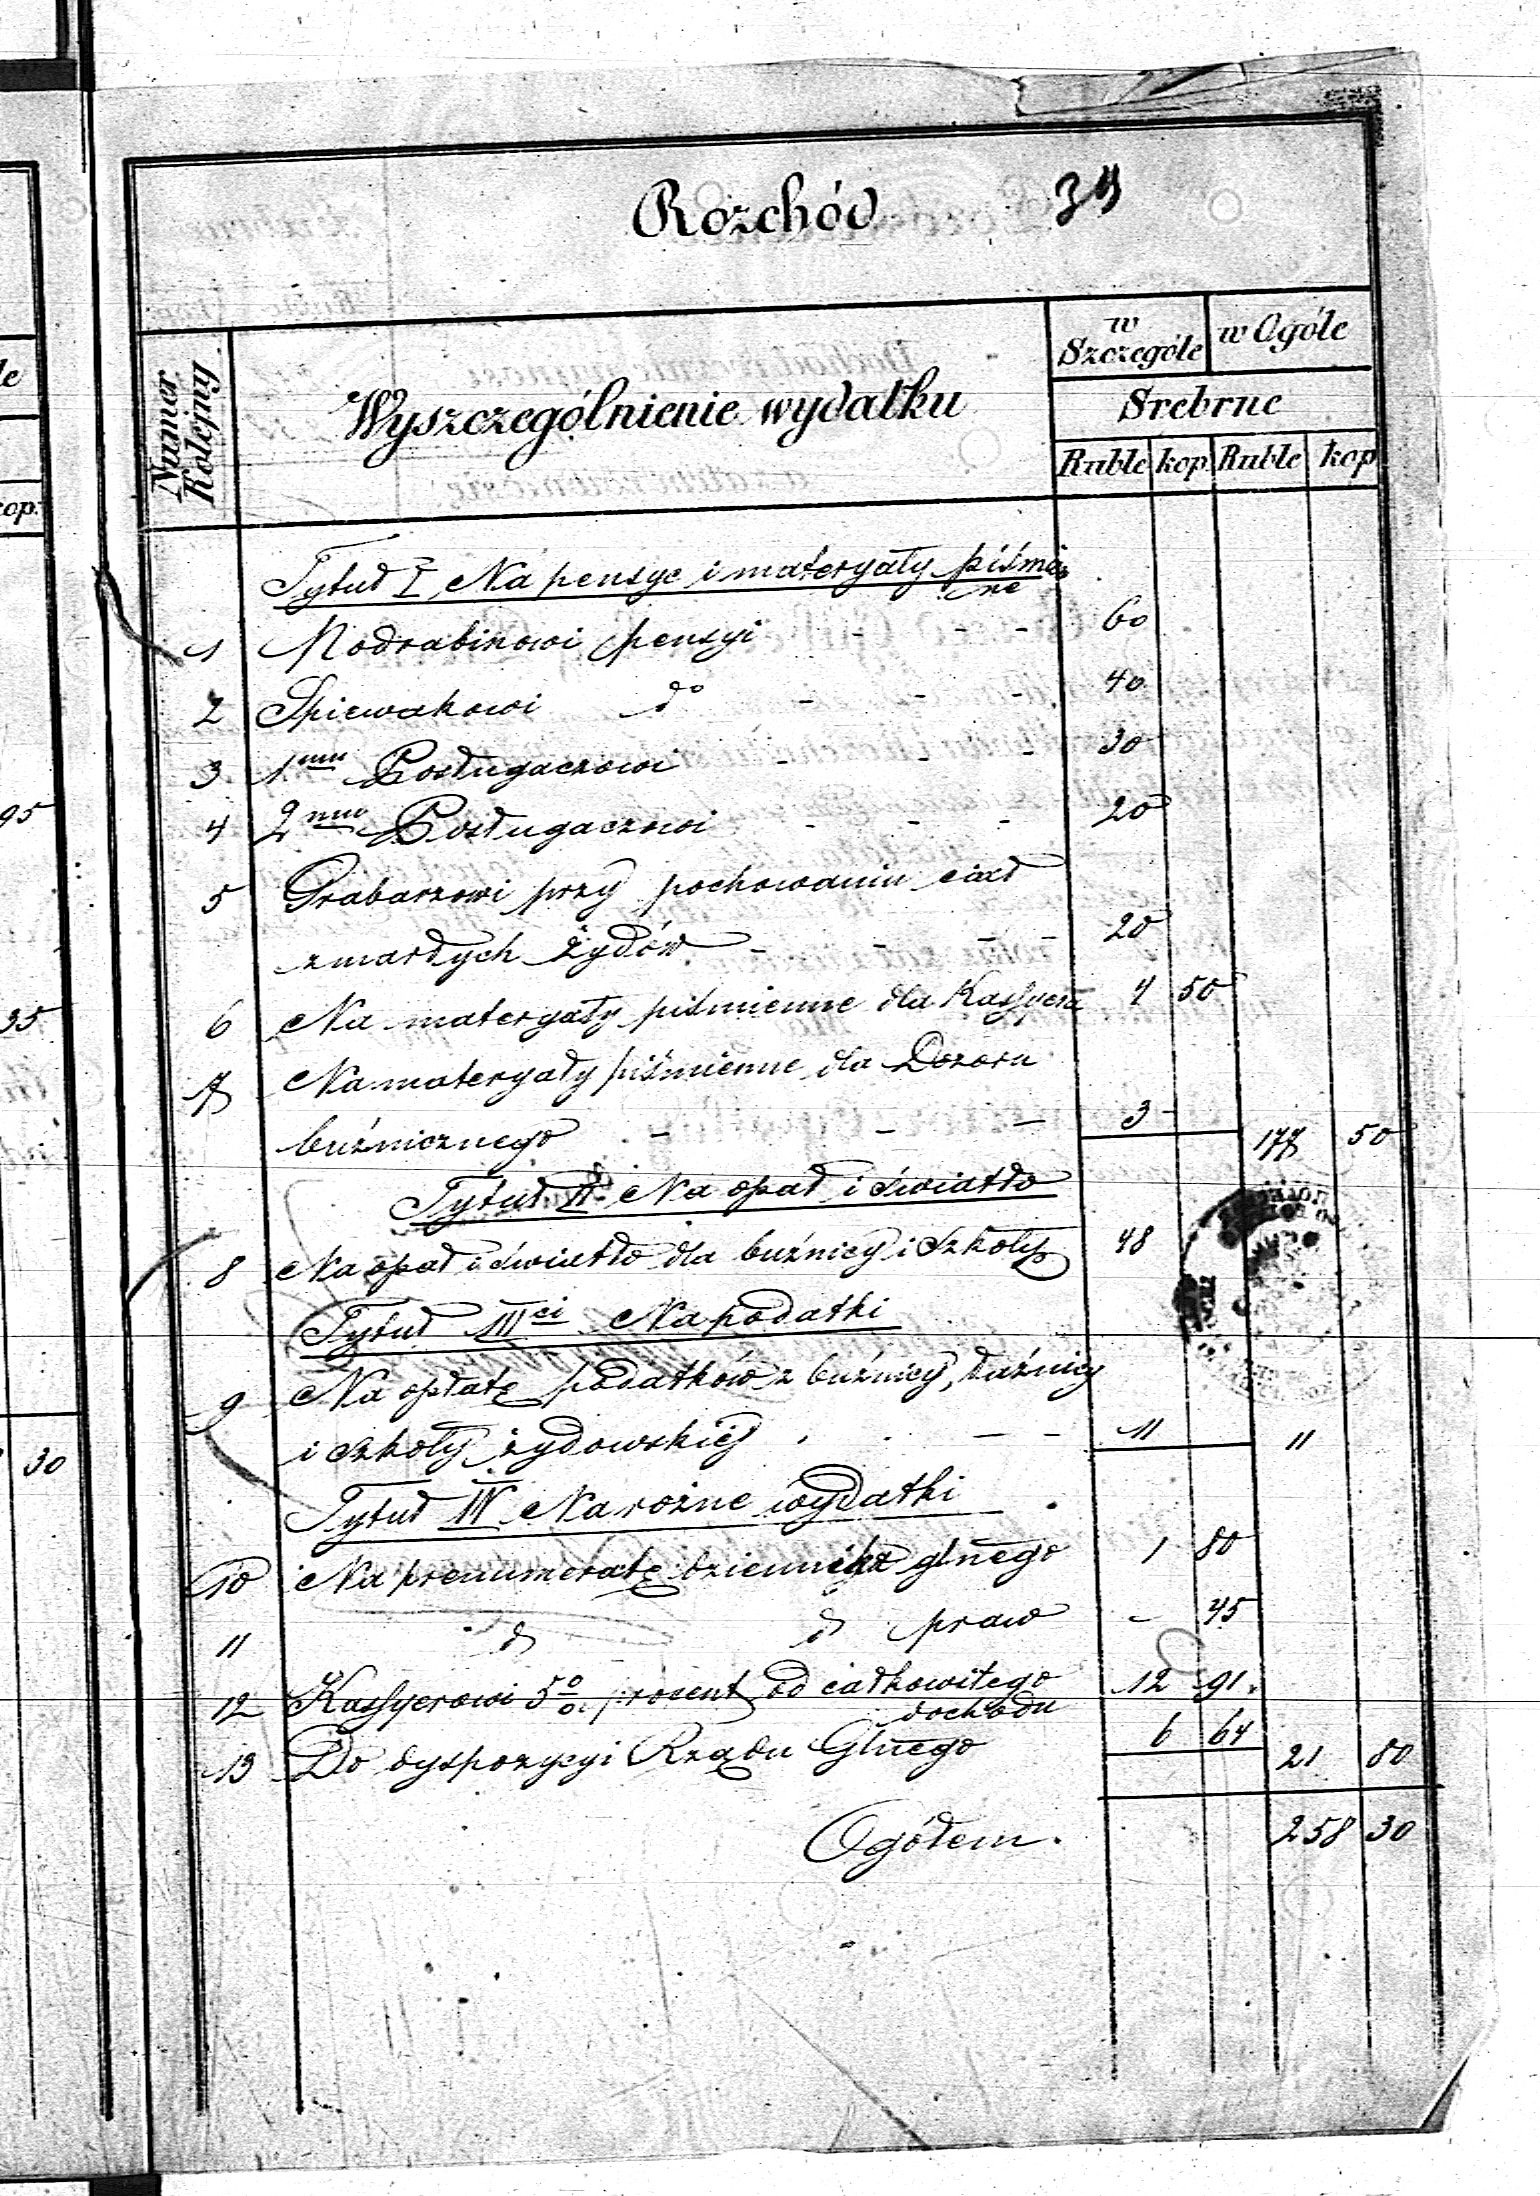 Rozchód 39
Numer Kolejny
Wyszczególnienie wydatku
w Szczególe
w Ogóle
Srebrne
Ruble kop Ruble kop
Tytuł I Na pensye i materyały piśmien
ne
1 Podrabinowi pensyi - - - 60
2 Spiewakowi do - - - 40
3 1mu Posługaczowi - - - 30
4 2mu Posługaczowi - - - 20
5 Grabarzowi przy pochowaniu ciał
zmarłych żydów - - - - 20
6 Na materyały piśmienne dla Kassyera 4 50
7 Na materyały piśmienne dla Dozoru
buźnicznego - - - 3 - 177 50
Tytuł II Na opał i światło
8 Na opał i światło dla buźnicy i szkoły 48
Tytuł IIIci Na podatki
9 Na opłatę podatków z buźnicy, łaźnicy
i szkoły żydowskiéj . . - - 11 11
Tytuł IV Na rożne wydatki
10 Na prenumeratę dziennika głnego 1 80
11 d d praw - 45
12 Kassyerowi 5% procent od całkowitego 12 91
dochodu
13 Do dyspozycyi Rządu Głnego 6 64 21 80
Ogółem. 258 30
le
kop:
95
35
30